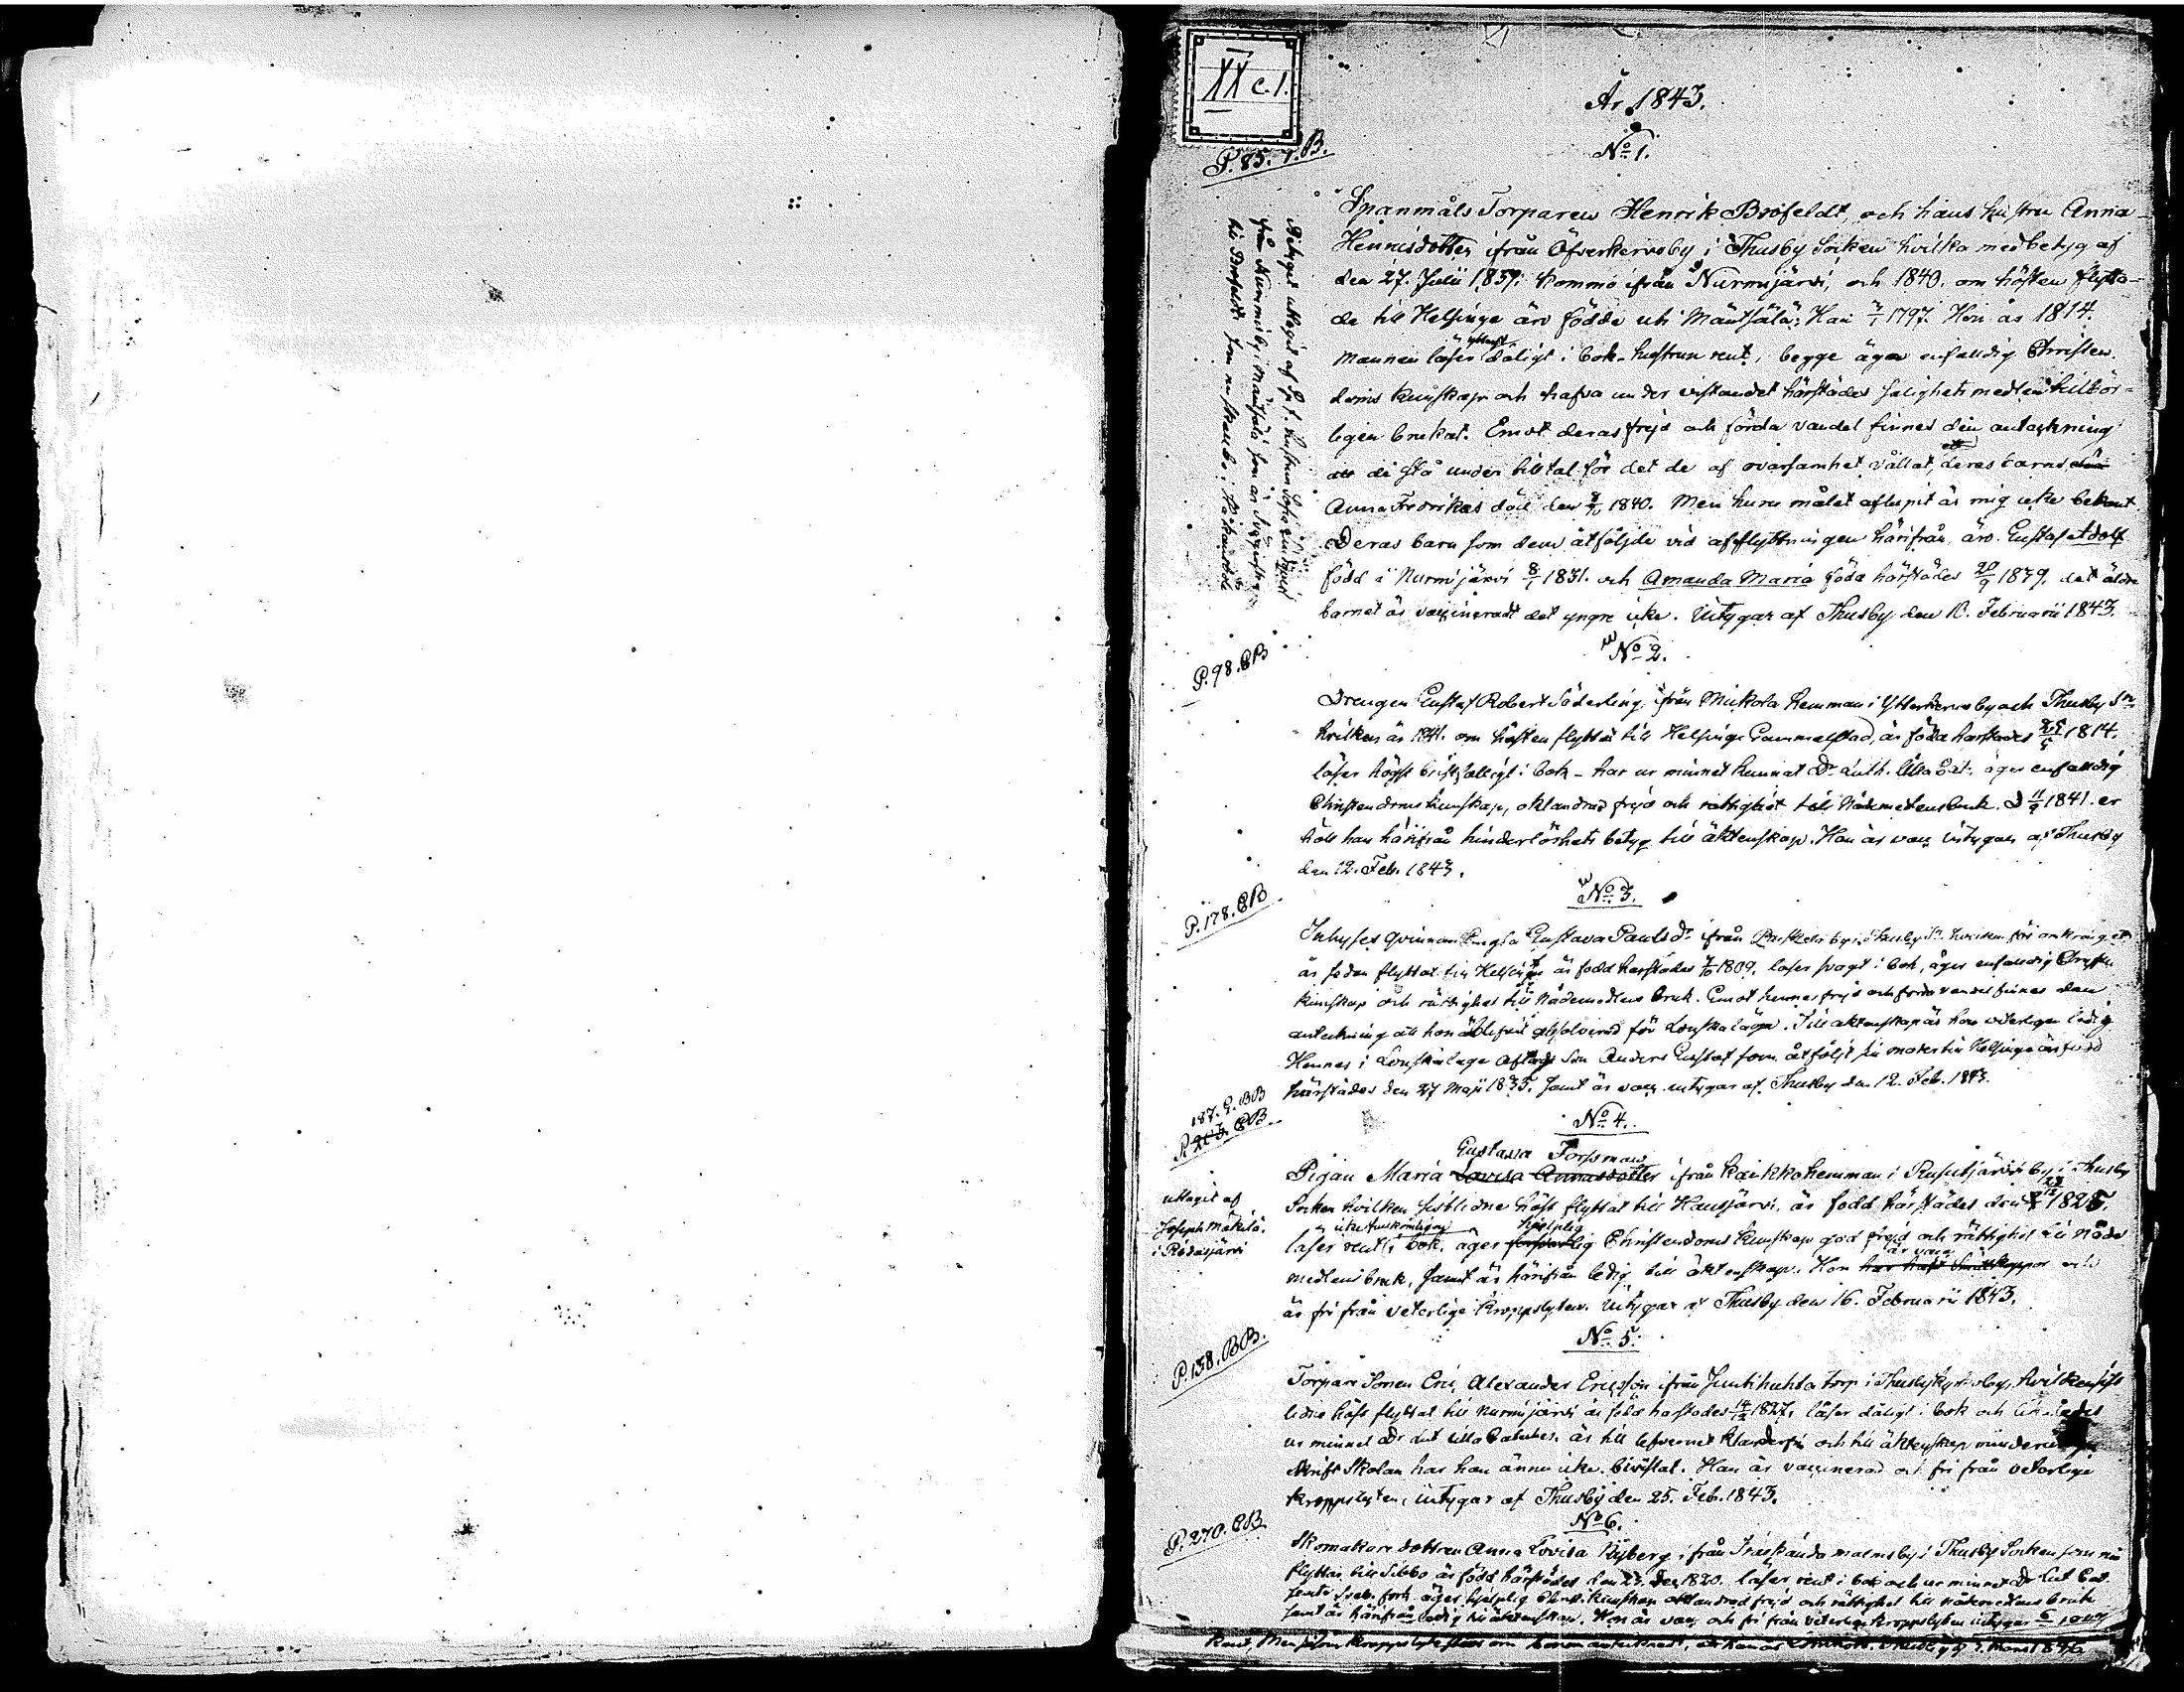 XX c. 1.
År 1843.
No 1.
P. 85. B.
Spanmåls Torparen Henrik Brofeldt, och hans hustru Anna
Henricsdotter ifrån Öfverkervoby i Thusby Socken hvilka med betyg af
den 27. Julii 1839. kommo ifrån Nurmijärvi, och 1840. om hösten flytta-
de till Helsinge äro födde uti Mäntsälä; Han 1797. Hon år 1814.
Mannen läser ytterst dåligt i bok, hustrun rent, begge äga enfaldig Christen-
doms kunskap och hafva under vistandet härstädes salighetsmedlen tillbör-
ligen brukat. Emot deras frejd och förda vandel finnes den anteckning
att de stå under tilltal för det de af ovarsamhet vållat deras barns
Anna Fredrikas död den 1840. Men huru målet aflupit är mig icke bekant
Deras barn som dem åtföljde vid afflyttningen härifrån äro. Gustaf Adolf
född i Nurmijärvi 8/1 1831. och Amanda Maria föda härstädes 20/9 1839. det äldre
barnet är vaccineradt det yngre icke. Utygar af Thusby den 10. Februarii 1843.
Betyget uttagit af hustrun
från Nummis by i Mäntsälä som är
till Brofeldt
No 2.
P. 98. CB
Drengen Gustaf Robert Söderling, ifrån Mickola hemman i Ytterkervoby och Thusby Sn
hvilken år 1841. om hösten flyttat till Helsinge Gammelstad, är född härstädes 1814.
läser högst bristfälligt i bok - har ur minnet kunnat Dr Luth. lilla Cat. äger enfaldig
Christendoms kunskap, oklandrad frejd och rättighet till Nådemedlens bruk. D 11/9 1841. er
höll han härifrån hinderlöshets betyg till äktenskap. Han är vacc. Utygar af Thusby
den 12. Feb. 1843.
No 3.
P. 178. CB
Inhyses qvinnan Gustava Paulsdr ifrån by i Thusby Sn hvilken för omkring ett
år sedan flyttat till Helsinge är född härstädes 1809. läser svagt i bok, äger enfaldig Christ.
kunskap och rättighet till Nådemedlens bruk. Emot hennes frejd och förda vandel finnes den
anteckning att hon blifvit absolverad för Lönskaläge. Till äktenskap är hon veterligen ledig
Hennes i Lönskaläge aflade Son Anders Gustaf som åtföljt sin moder till Helsinge är född
härstädes den 27 Maji 1835. samt är vacc. utygar af Thusby den 12. Feb. 1843.
No 4.
187. G. BB
P. CB
Gustava Forssman
Pigan Maria Lovisa Annasdotter ifrån Kaikko hemman i Rusutjärvi by i Thusby
Socken hvilken sistlidne höst flyttat till Hausjärvi, är född härstädes den 1825.
icke hjelplig
läser rent i bok, äger Christendoms kunskap god frejd och rättighet till Nåde
är vacc.
medlens bruk, samt är härifrån ledig till äktenskap. Hon har haft Småttkoppor och
är fri från veterlige kroppslyten. Utygar af Thusby den 16. Februarii 1843.
uttagit af
Joseph Mäkilä.
i Ridasjärvi
No 5.
P. 138. BB.
Torpare Sonen Eric Alexander Ericsson ifrån Juntihuhta torp i Thusby kyrkoby, hvilken sist
lidne höst flyttat till Nurmijärvi är född härstädes 1827, läser dåligt i bok och
ur minnet Dr Lut lilla Catches. är till lefvernet klanderfri och till äktenskap minderårig
Skrift Skolan har han ännu icke bivistat. Han är vaccinerad och fri från veterlige
kroppslyten, utygar af Thusby den 25. Feb. 1843.
No 6.
P. 270. CB
Skomakare dottren Anna Lovisa Nyberg ifrån Träskända malmsby i Thusby Socken som nu
flyttar till Sibbo är född härstädes den 23. Dec. 1820. läser rent i bok och ur minnet Dr Lut Cat.
äger hjelplig Christ. kunskap oklandrad frejd och rättighet till nådemedlens bruk
samt är härifrån ledig till äktenskap. Hon är vacc. och fri från veterliga kroppslyten utygar